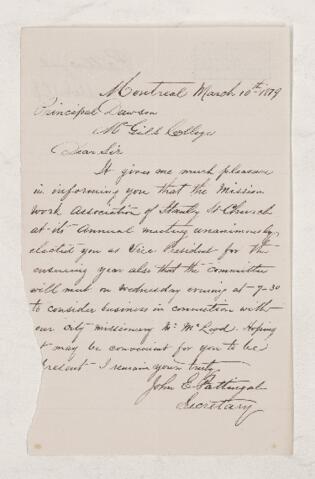 Montreal March 10th 1879
Principal Dawson
McGill College
Dear Sir
It gives me much pleasure
in informing you that the Mission
Work Association of Stanley St Church
at its Annual meeting unanimously
elected you as Vice President for the
ensuing year also that the committee
will meet on Wednesday evening at 7-30
to consider business in connection with
our city missionary Mr McLeod. Hoping
it may be convenient for you to be
present I remain yours truly
John E.
Secretary